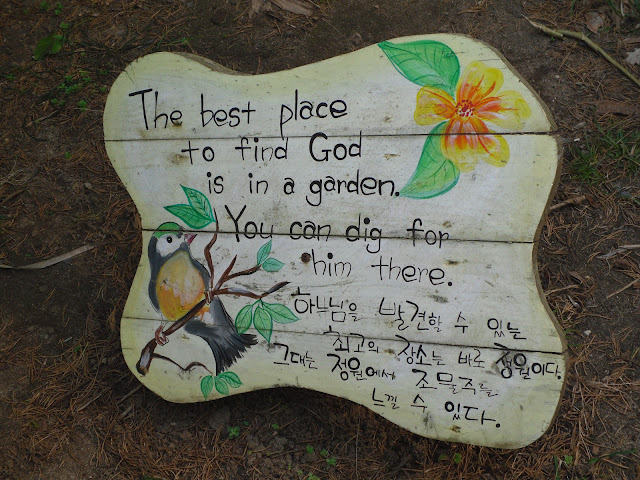 The best place
to find God
is in a garden.
You can dig for
him there.
하느님을 발견할 수 있는
최고의 장소는 바로 정원이다.
그대는 정원에서 조물주를
느낄 수 있다.